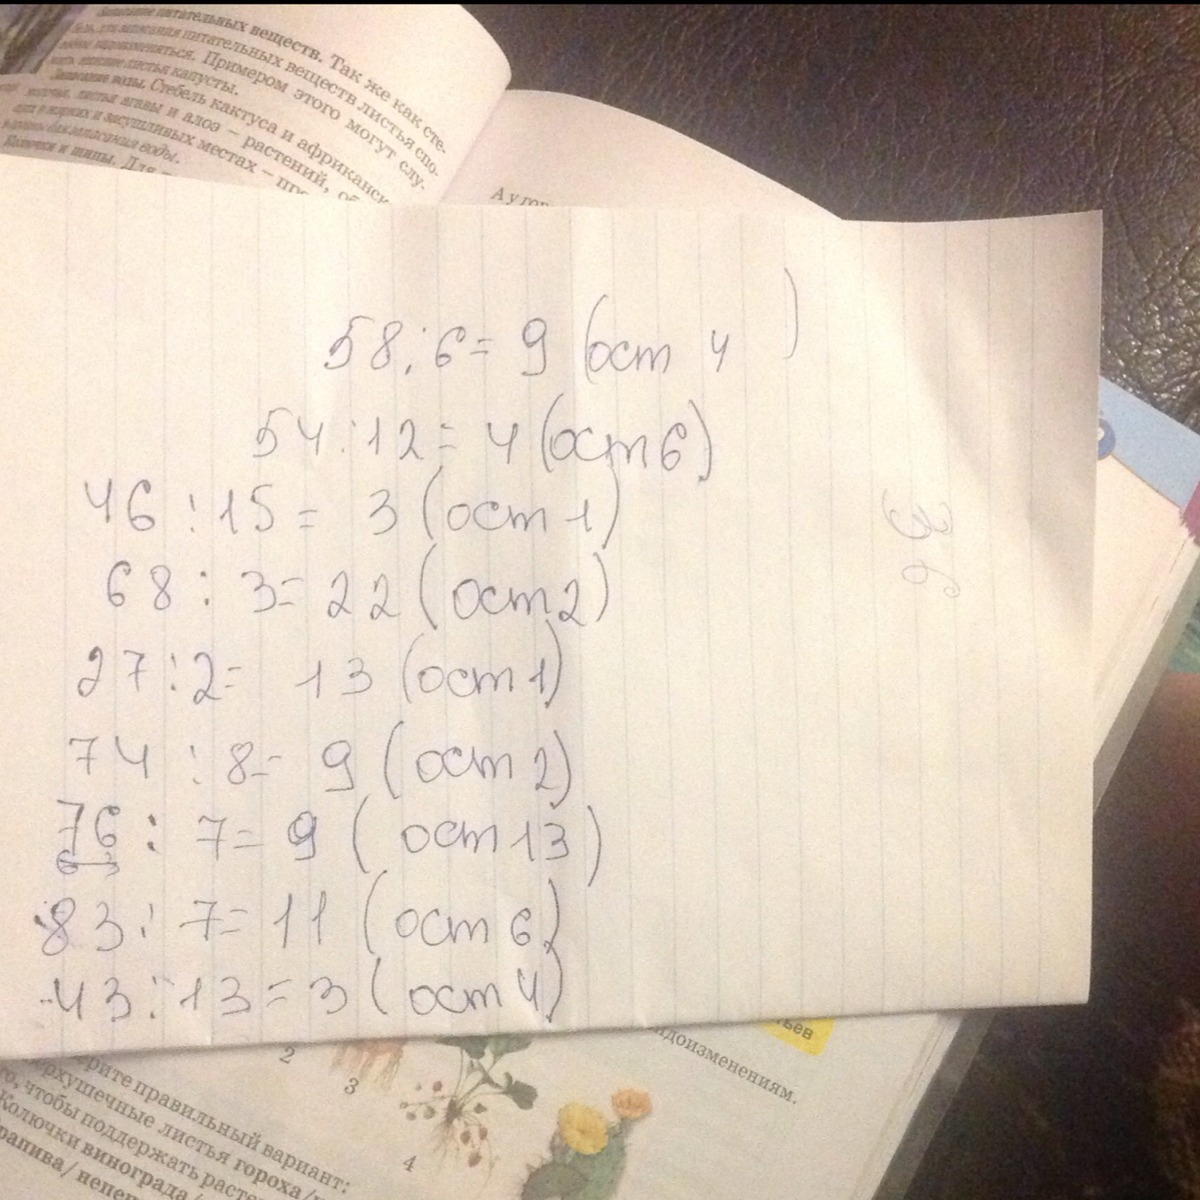 питательных веществ. Так же как сте-
питательных веществ листья спо-
видоизменяться. Примером этого могут слу-
листья капусты.
Запасание воды. Стебель кактуса и африканск
листья агавы и алоэ – растений, об
жарких и засушливых местах – пр
для запасания воды.
Колючки и шипы. Для
А у гор
58:6= 9 (ост 4 )
54:12= 4 (ост 6)
46:15= 3 (ост 1)
68:3= 22 (ост 2)
27:2= 13 (ост 1)
74:8= 9 (ост 2)
76:7= 9 (ост 13)
63
83:7= 11 (ост 6)
43:13=3 (ост 4)
36
ьев
идоизменениям.
2
3
4
ерите правильный вариант:
рхушечные листья гороха/
о, чтобы поддержать расте
Колючки винограда/
рапива/непе